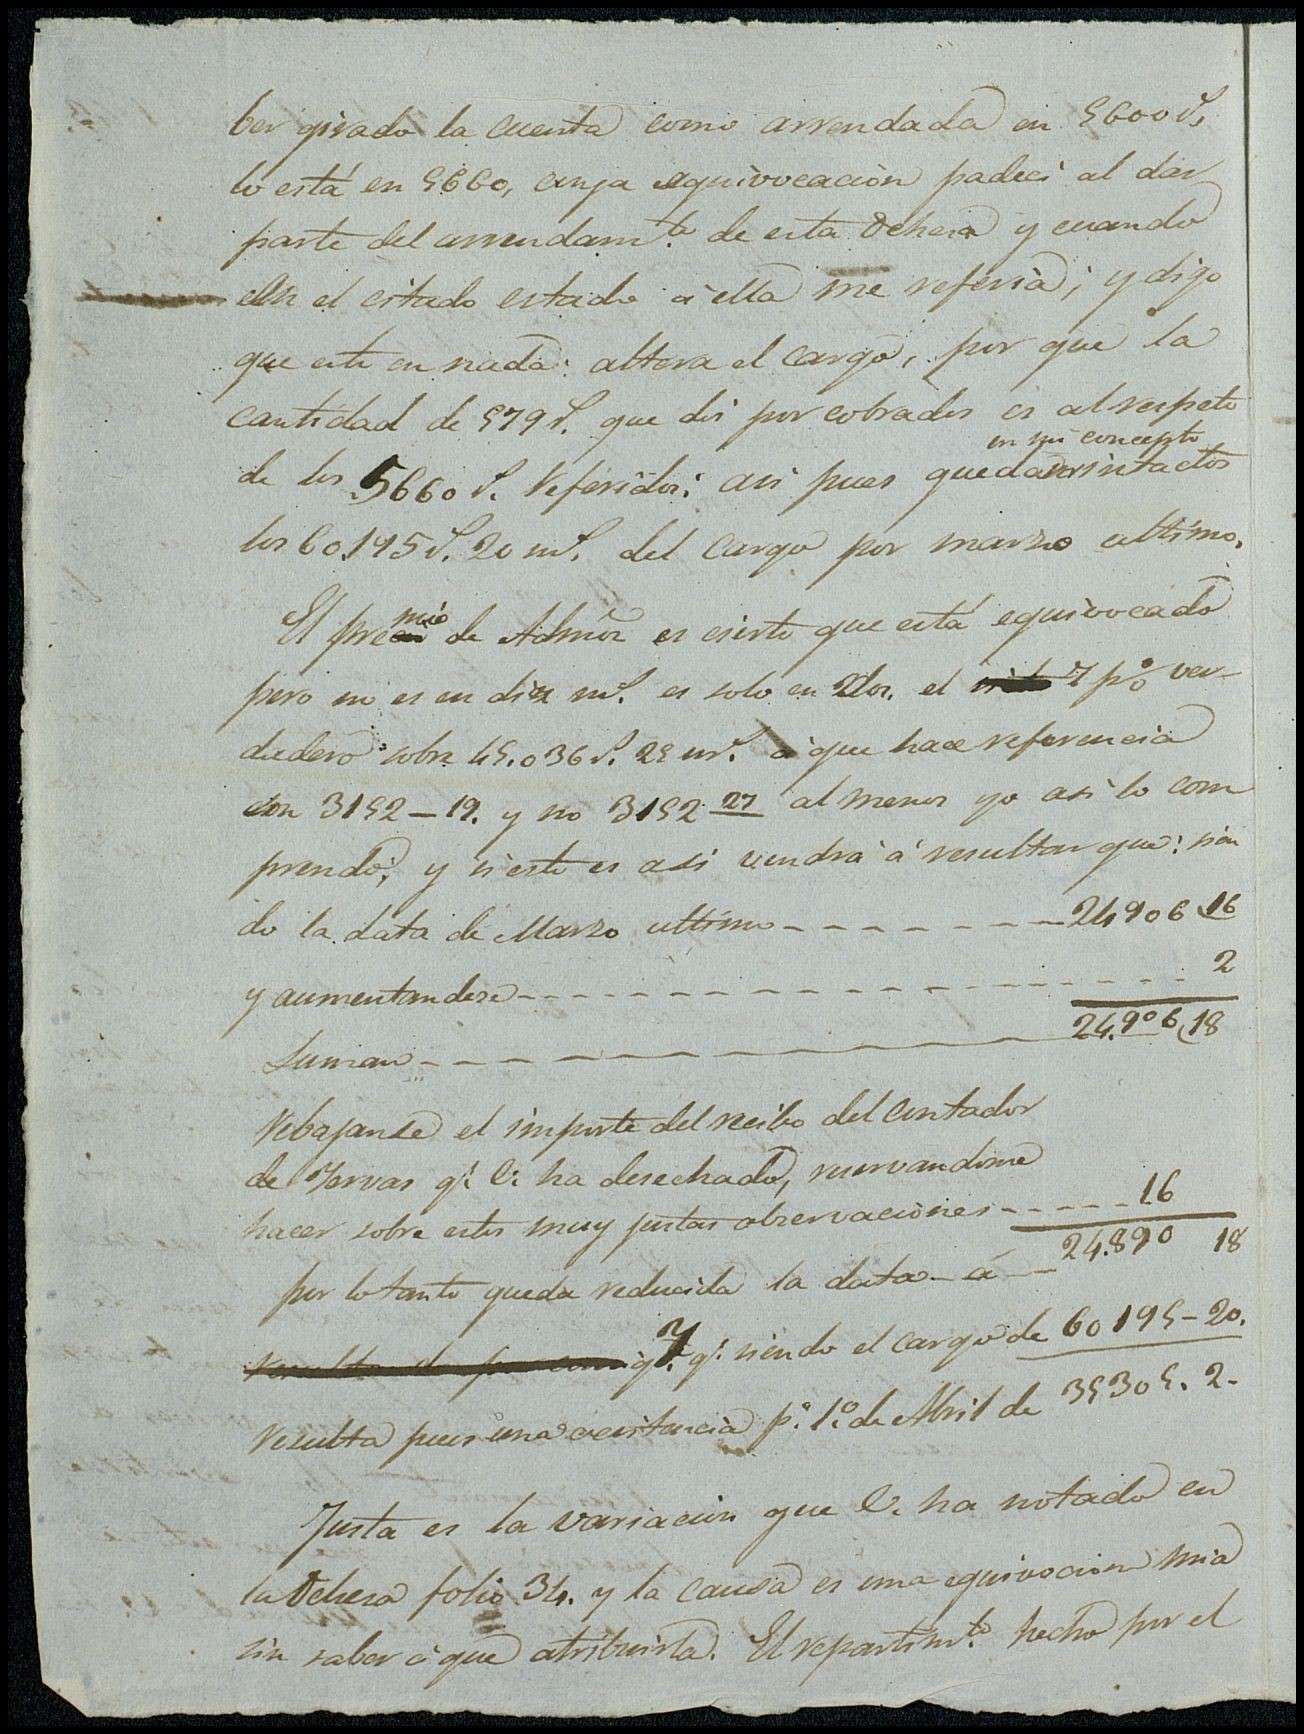 ber girado la cuenta como arrendada en 5600 r.s
lo está en 5660, cuya equivocación padecí al dar
parte del arrendam.to de esta Dehesa y cuando
en el citado estado á ella me referia; y digo
que esto en nada altera el cargo, por que la
cantidad de 579 r.s que di por cobrados es al respeto
en mi concepto
de los 5660 r.s referidos: asi pues quedan intactos
los 60.195 r.s 20 m.s del cargo por marzo ultimo.
El premio de Admón es cierto que está equivocado
pero no es en diez m.s es solo en dos. el 7 p.o% ver-
dadero sobre 45.036 r.s 25 m.s á que hace referencia
son 3152 - 19. y no 3152 27 al menos yo asi lo com
prendo, y si esto es asi vendrá á resultar que: sien
do la data de Marzo ultimo - - - - - - - 24906 16
y aumentandose - - - - - - - - - - - - 2
Suman - - - - - - - - - - - 24.906 18
Rebajanse el importe del recibo del contador
de Yervas q.e V. ha desechado, reservandome
hacer sobre esto muy justas observaciones - - - - - 16
por lo tanto queda reducida la data - á - 24.890 18
Y q.e siendo el cargo de 60195 - 20.
resulta pues una existencia p.a 1.o de Abril de 35305. 2 -
Justa es la variacion que V. ha notado en
la Dehesa folio 34. y la causa es una equivocacion mia
sin saber á que atribuirla. El repartim.to hecho por el